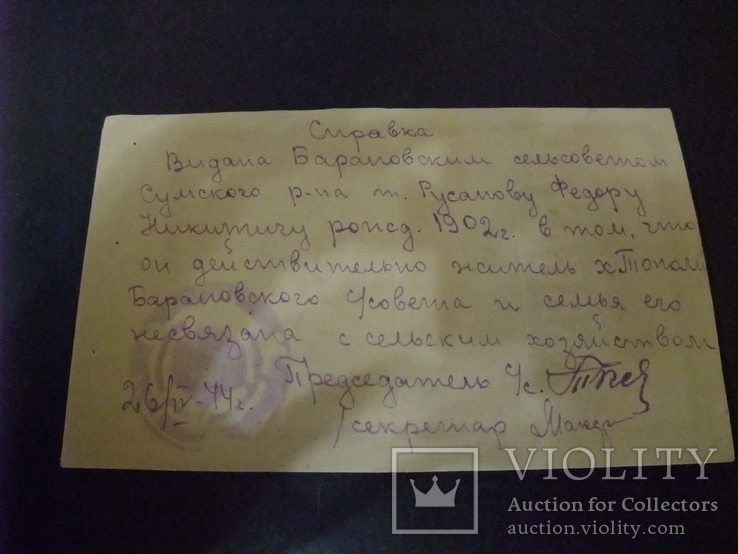 Справка
Видана Барановским сельсоветом
Сумского р-на т. Русанову Федору
Никитичу рожд. 1902г. в том, что
он действительно житель х Тополи
Барановского с/совета и семья его
несвязана с сельским хозяйством
Председатель с/с.
26/IV-44г.
секретар
VIOLITY
Auction for Collectors
auction.violity.com